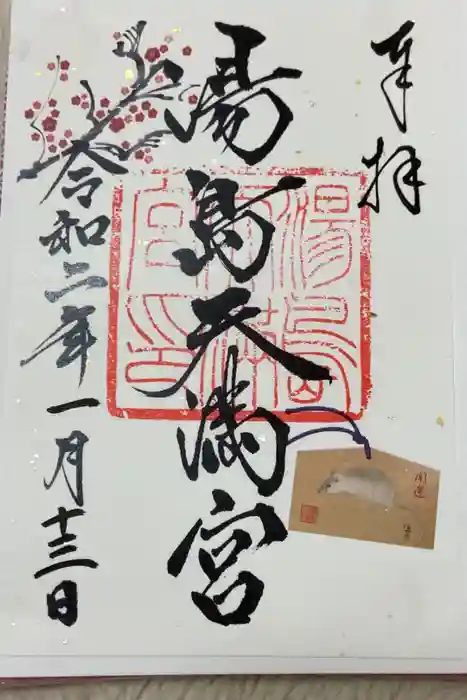 奉拝
湯島天満宮
開運
令和二年一月十三日